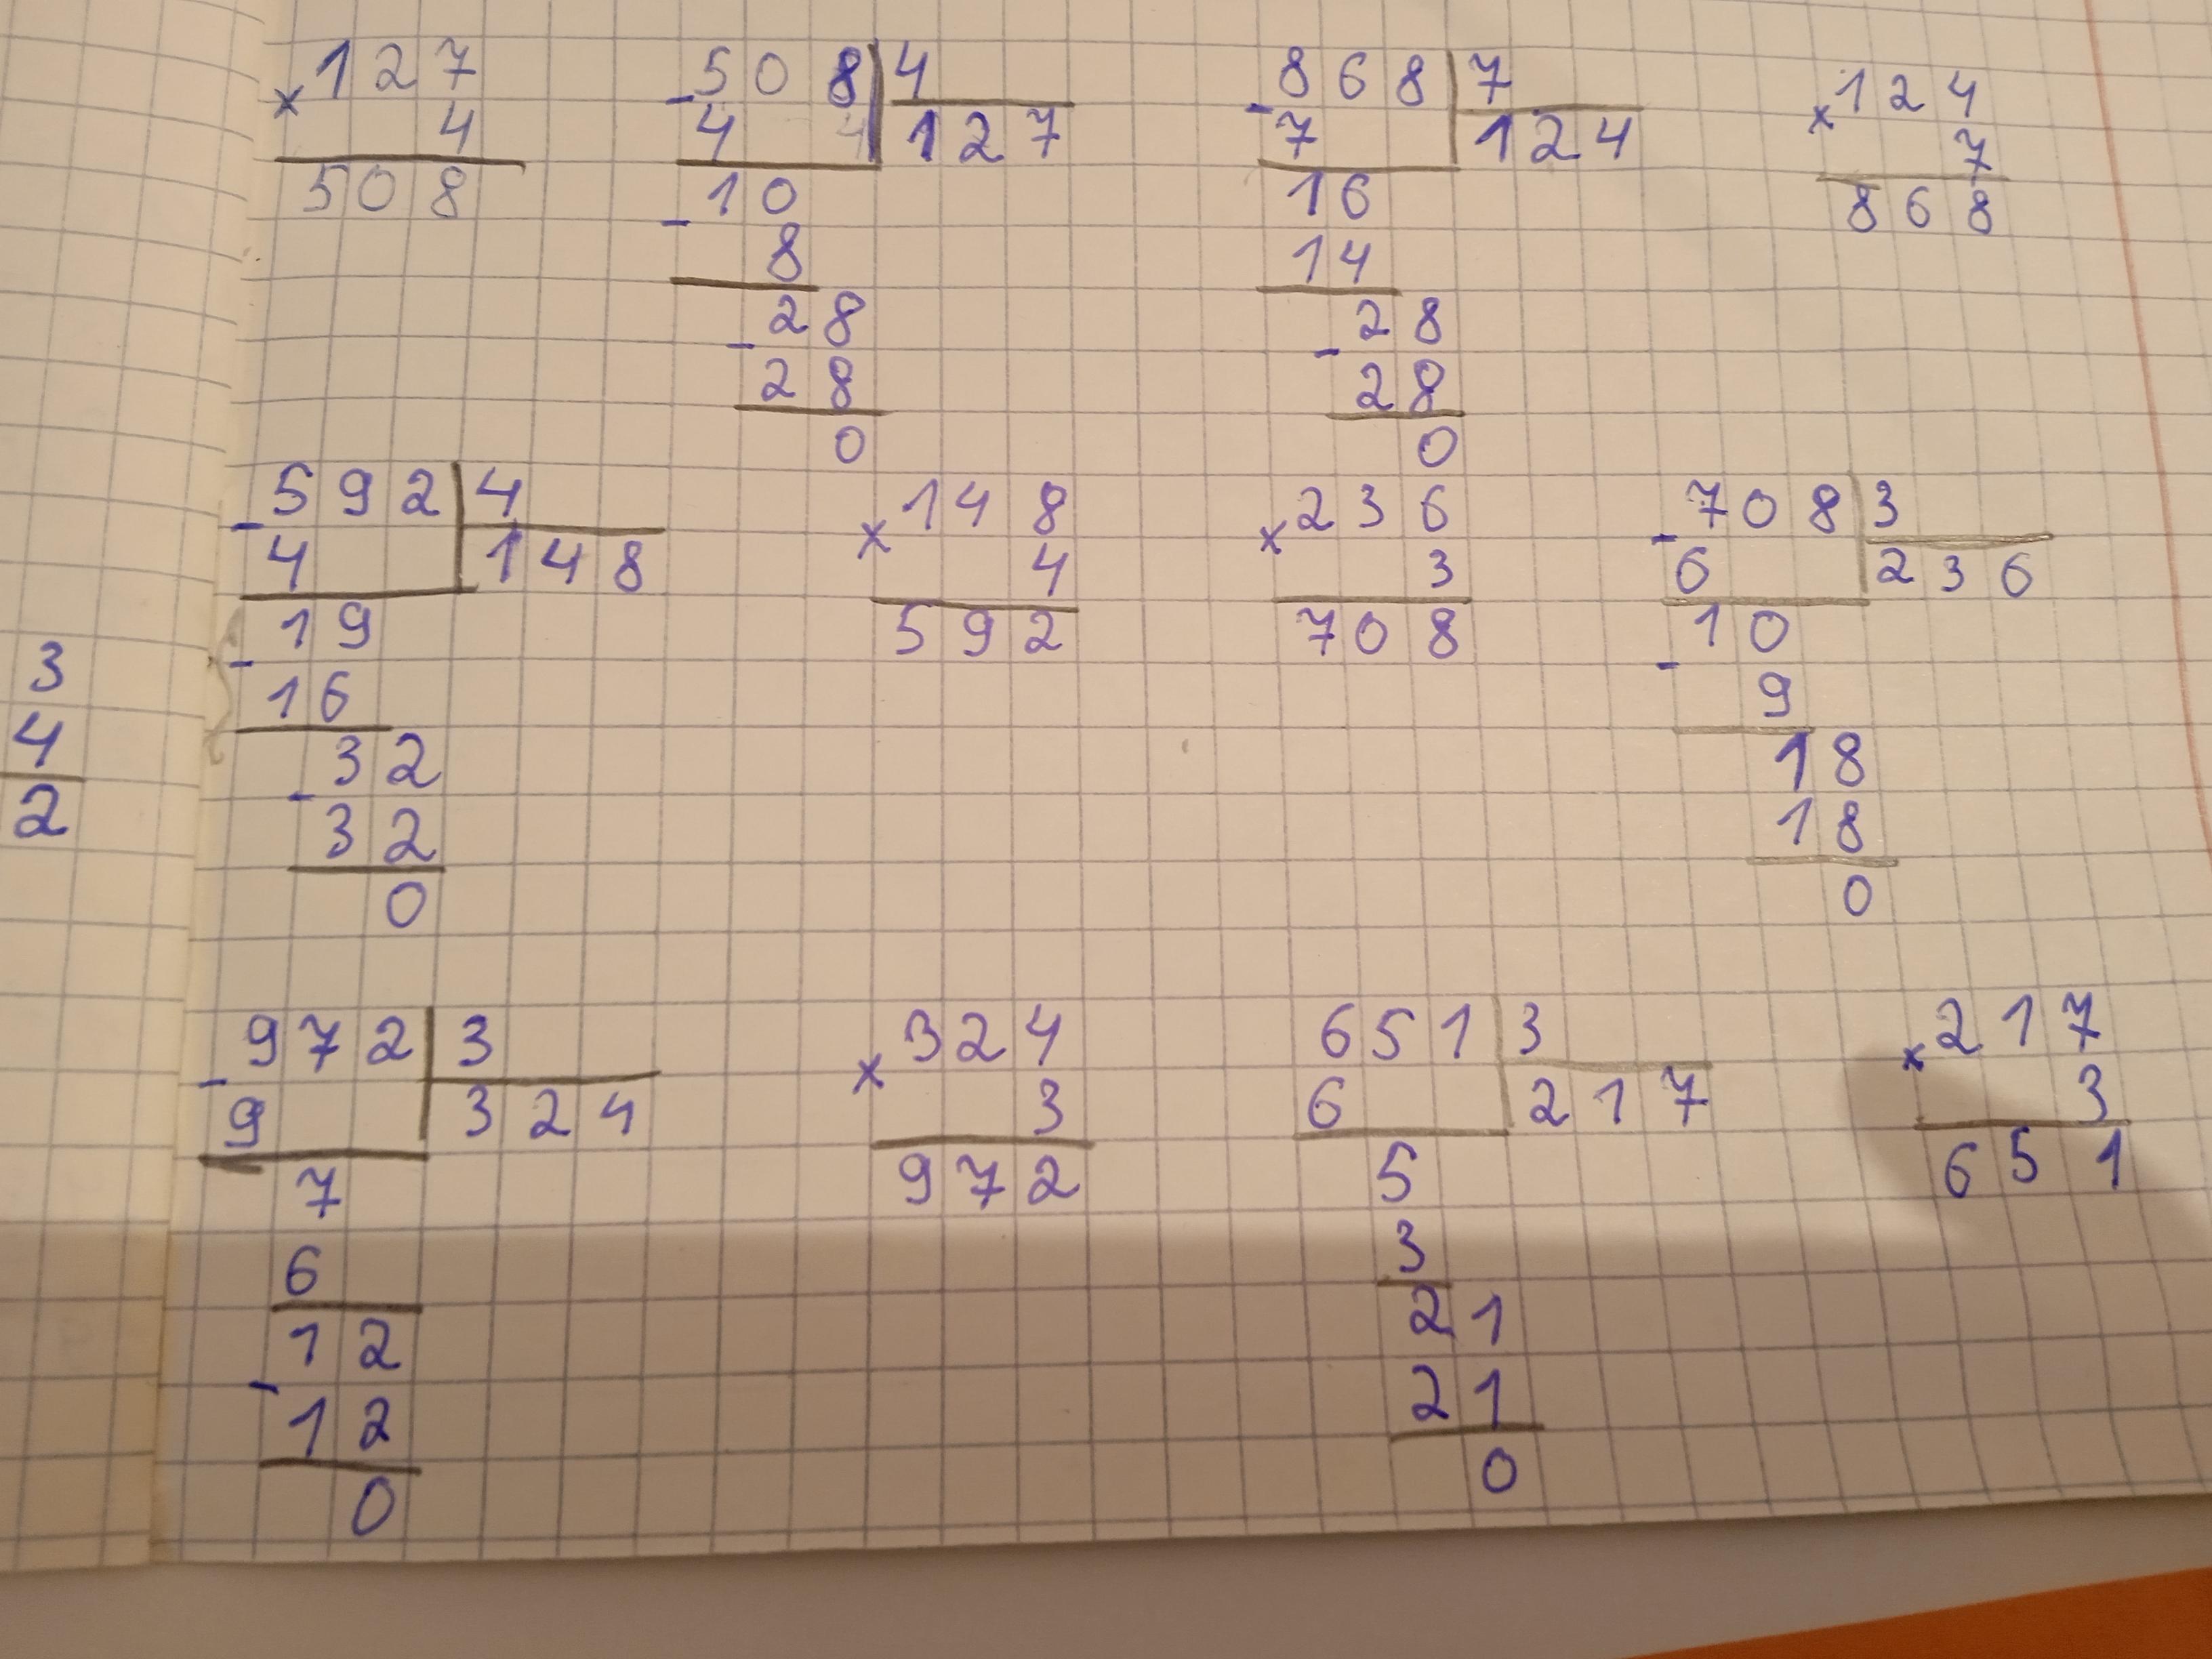 × 127
4
508
- 508 4
4 4 127
- 10
8
- 28
28
0
- 868 7
7 124
16
14
- 28
28
0
× 124
7
868
3
4
2
- 592 4
4 148
- 19
16
- 32
32
0
× 148
4
592
× 236
3
708
- 708 3
6 236
- 10
9
18
18
0
- 972 3
9 324
7
6
- 12
12
0
× 324
3
972
651 3
6 217
5
3
21
21
0
× 217
3
651